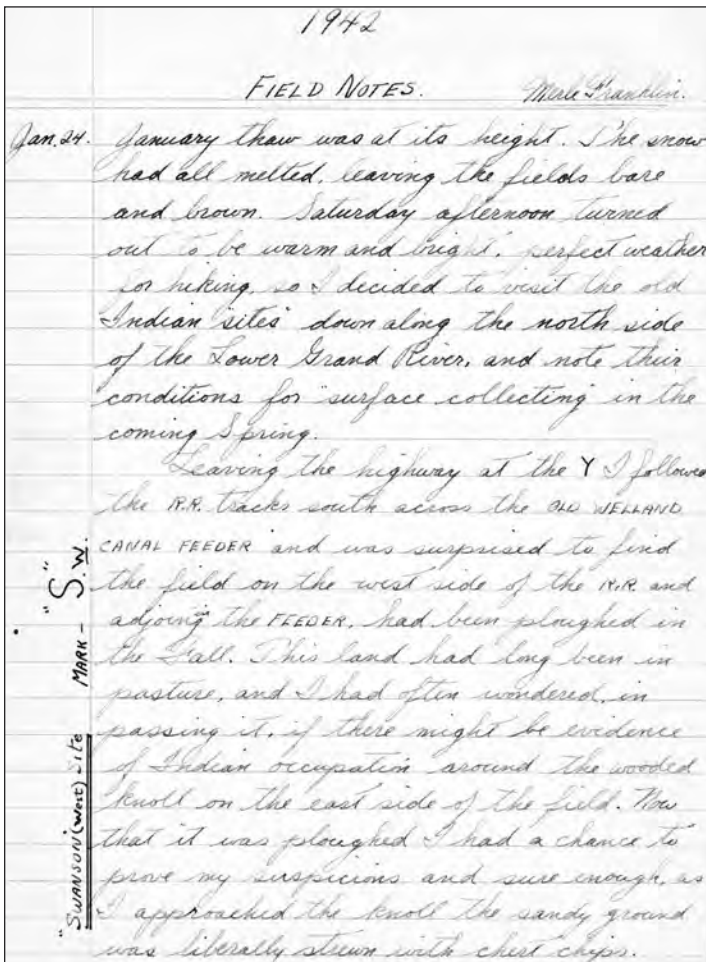 1942
FIELD NOTES. Merle Franklin.
Jan. 24. January thaw was at its height. The snow
had all melted, leaving the fields bare
and brown. Saturday afternoon turned
out to be warm and bright, perfect weather
for hiking, so I decided to visit the old
Indian "sites" down along the north side
of the Lower Grand River, and note their
conditions for surface collecting in the
coming Spring.
Leaving the highway at the Y I followed
the R.R. tracks south across the OLD WELLAND
CANAL FEEDER and was surprised to find
the field on the west side of the R.R. and
adjoining the FEEDER, had been ploughed in
the Fall. This land had long been in
pasture, and I had often wondered, in
passing it, if there might be evidence
of Indian occupatin around the wooded
knoll on the east side of the field. Now
that it was ploughed I had a chance to
prove my suspicions and sure enough, as
I approached the knoll the sandy ground
was liberally strewn with chert chips.
"SWANSON (West) Site MARK - "S".W.